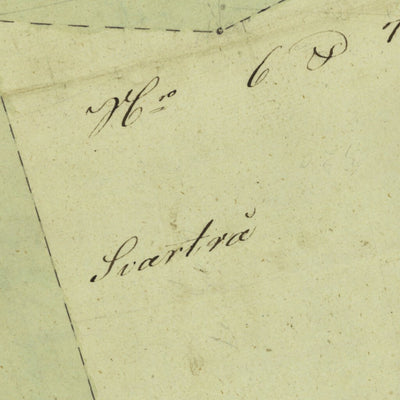 Nro 6 &
Svartrå